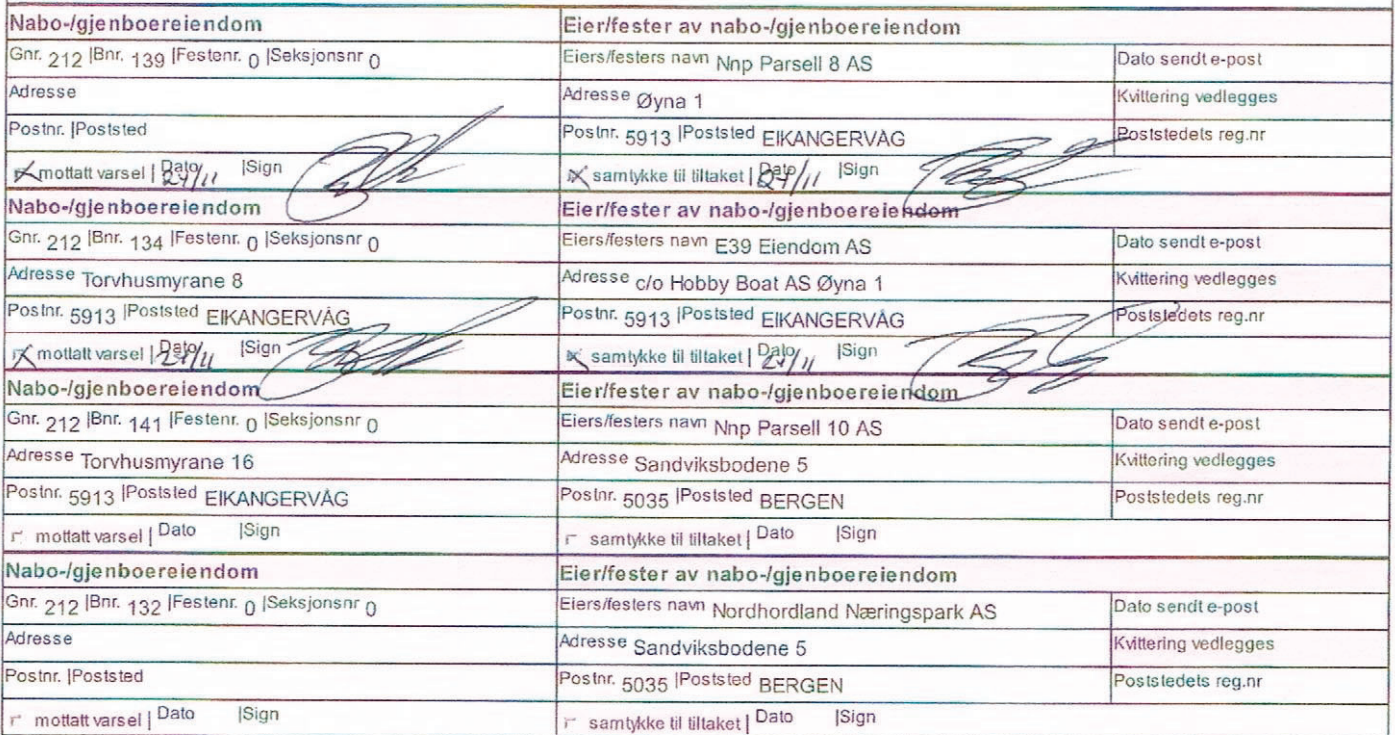 Nabo-/gjenboereiendom Eier/fester av nabo-/gjenboereiendom
Gnr. 212 |Bnr. 139 |Festenr. 0 |Seksjonsnr 0 Eiers/festers navn Nnp Parsell 8 AS Dato sendt e-post
Adresse Adresse Øyna 1 Kvittering vedlegges
Postnr. |Poststed Postnr. 5913 |Poststed EIKANGERVÅG Poststedets reg.nr
mottatt varsel | Dato 24/11 |Sign samtykke til tiltaket | Dato 24/11 |Sign
Nabo-/gjenboereiendom Eier/fester av nabo-/gjenboereiendom
Gnr. 212 |Bnr. 134 |Festenr. 0 |Seksjonsnr 0 Eiers/festers navn E39 Eiendom AS Dato sendt e-post
Adresse Torvhusmyrane 8 Adresse c/o Hobby Boat AS Øyna 1 Kvittering vedlegges
Postnr. 5913 |Poststed EIKANGERVÅG Postnr. 5913 |Poststed EIKANGERVÅG Poststedets reg.nr
mottatt varsel | Dato 24/11 |Sign samtykke til tiltaket | Dato 24/11 |Sign
Nabo-/gjenboereiendom Eier/fester av nabo-/gjenboereiendom
Gnr. 212 |Bnr. 141 |Festenr. 0 |Seksjonsnr 0 Eiers/festers navn Nnp Parsell 10 AS Dato sendt e-post
Adresse Torvhusmyrane 16 Adresse Sandviksbodene 5 Kvittering vedlegges
Postnr. 5913 |Poststed EIKANGERVÅG Postnr. 5035 |Poststed BERGEN Poststedets reg.nr
mottatt varsel | Dato |Sign samtykke til tiltaket | Dato |Sign
Nabo-/gjenboereiendom Eier/fester av nabo-/gjenboereiendom
Gnr. 212 |Bnr. 132 |Festenr. 0 |Seksjonsnr 0 Eiers/festers navn Nordhordland Næringspark AS Dato sendt e-post
Adresse Adresse Sandviksbodene 5 Kvittering vedlegges
Postnr. |Poststed Postnr. 5035 |Poststed BERGEN Poststedets reg.nr
mottatt varsel | Dato |Sign samtykke til tiltaket | Dato |Sign